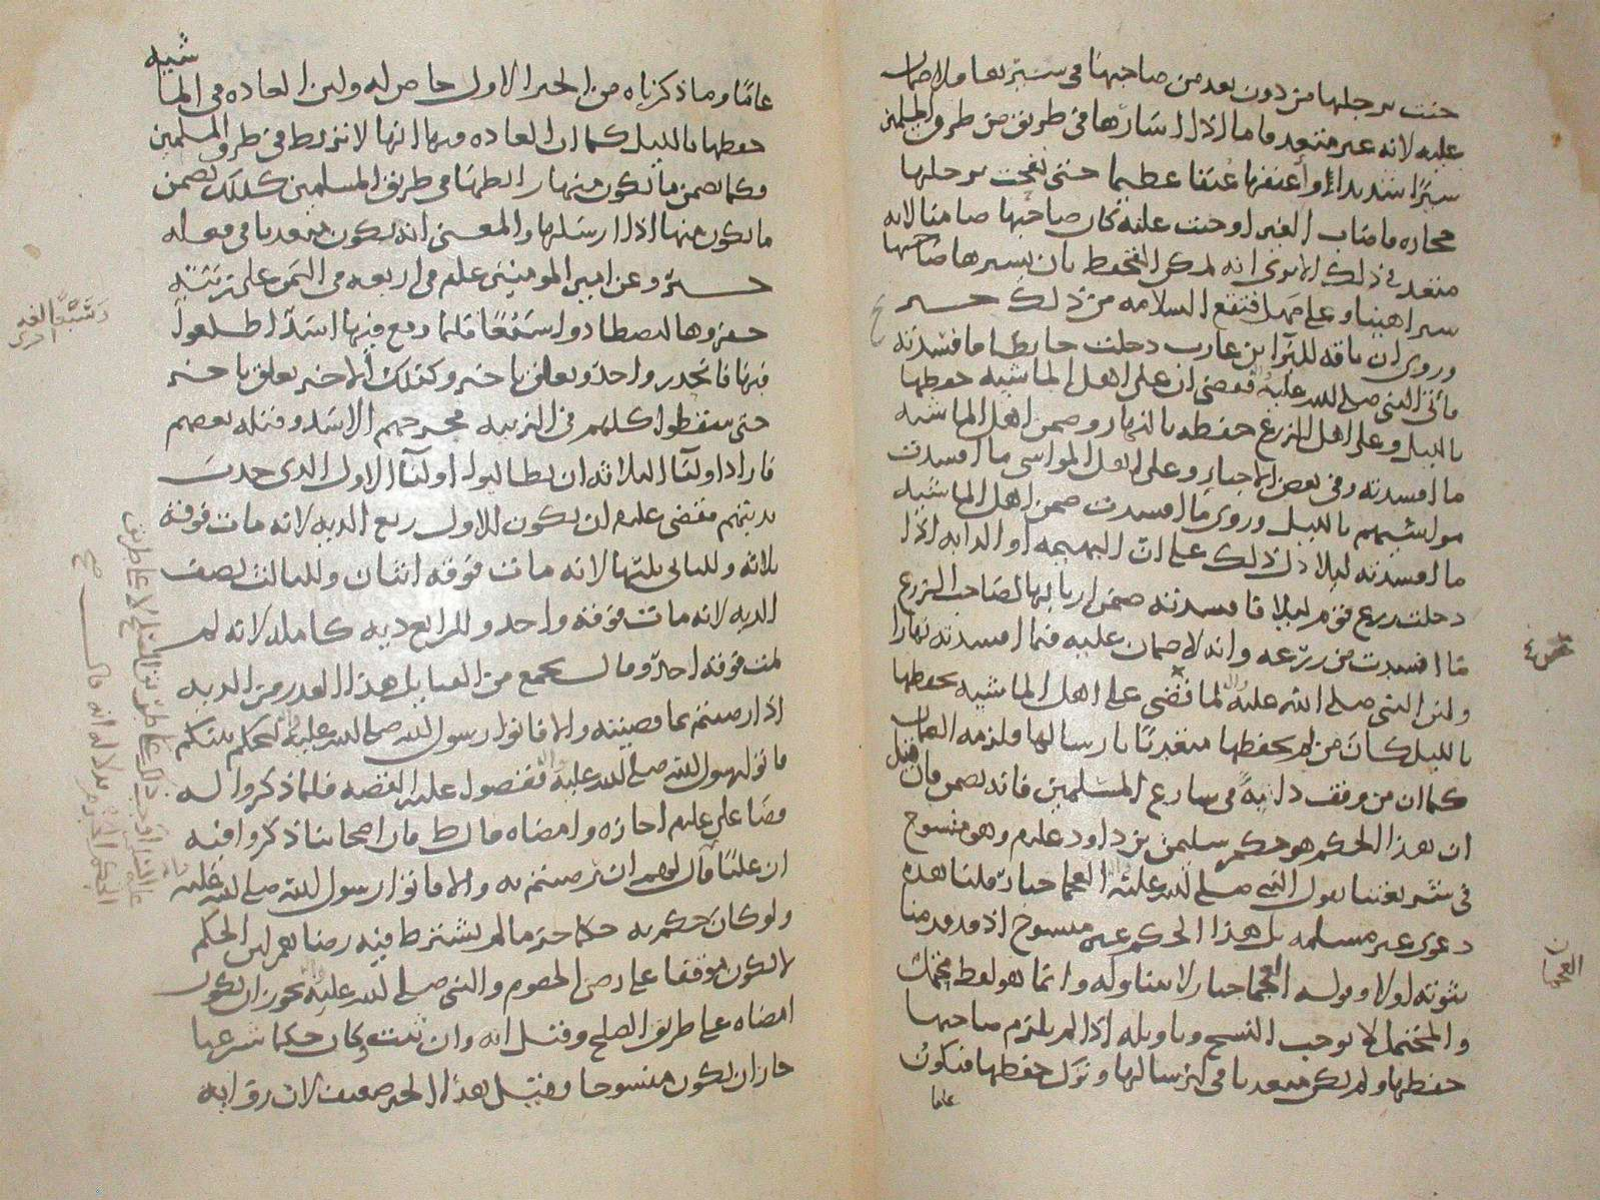 جنت برجلها من دون بعد من صاحبها في سيرها فلا ضمان
عليه لانه غير متعد فاما اذا اسارها في طريق من طرق المسلمين
سيرا شديدا او أعنفها عنفا عظيما حتى نفحت برجلها
حجارة فاصاب الغير او جنت عليه كان صاحبها ضامنا لانه
متعد في ذلك الا ترى انه يمكن التحفظ بان يسيرها صاحبها
سيرا هينا وعلى مهل فتقع السلامه من ذلك خبر
وروي ان ناقه للبرا بن عازب دخلت حايطا فافسدته
فأتى النبي صلى الله عليه واله فقضى ان على اهل الماشيه حفظها
بالليل وعلى اهل الزرع حفظه بالنهار وضمن اهل الماشيه
ما افسدته وفي بعض الاخبار وعلى اهل المواشي ما افسدت
مواشيهم بالليل وروي ما افسدت ضمن اهل الماشيه
ما افسدته ليلا دل ذلك على ان البهيمه او الدابه اذا
دخلت زرع قوم ليلا فافسدته ضمن اربابها لصاحب الزرع
ما افسدت من زرعه وانه لا ضمان عليه فيما افسدته نهارا
ولان النبي صلى الله عليه واله لما قضى على اهل الماشيه بحفظها
بالليل كان من لم يحفظها متعديا بارسالها ولزمه الضمان
كما ان من وقف دابة في شارع المسلمين فانه يضمن فان قيل
ان هذا الحكم هو حكم سليمن بن داود عليهم وهو منسوخ
في شريعتنا بقول النبي صلى الله عليه واله العجما جبار قلنا هذه
دعوى غير مسلمه بل هذا الحكم غير منسوخ اذ قد قدمنا
ثبوته اولا وقوله العجما جبار لا يتناوله وانما هو لفظ محتمل
والمحتمل لا يوجب النسخ وتاويله اذا لم يلتزم صاحبها
حفظها ولم يكن متعديا في ارسالها وترك حفظها فيكون
عاما
العجماء
عاما وما ذكرناه من الخبر الاول خاص له ولان العاده في الماشيه
حفظها بالليل كما ان العاده فيها انها لا تربط في طرق المسلمين
وكما يضمن ما يكون منها رابطها في طريق المسلمين كذلك يضمن
ما يكون منها اذا ارسلها والمعنى انه يكون متعديا في فعله
خبر وعن امير المومنين علم في اربعه في اليمن على زبية
حفروها ليصطادوا سبعا فلما وقع فيها اسد اطلعوا
فيها فانحدر واحد وتعلق باخر وكذلك الاخر تعلق باخر
حتى سقطوا كلهم في الزبيه فجرحهم الاسد وقتله بعضهم
فاراد اوليا الثلاثه ان يطالبوا اوليا الاول الذي جذب
بديتهم فقضى عليهم ان يكون للاول ربع الديه لانه مات فوقه
ثلاثه وللثاني ثلثها لانه مات فوقه اثنان وللثالث نصف
الديه لانه مات فوقه واحد وللرابع ديه كامله لانه لم
يمت فوقه احد وقال يجمع من القبايل هذا القدر من الديه
اذا رضيتم بما قضيته والا فاتوا رسول الله صلى الله عليه واله ليحكم بينكم
فاتوا رسول الله صلى الله عليه واله فقصوا عليه القصه فلما ذكروا له
قضا علي عليهم اجازه وامضاه قال ط فان اصحابنا ذكروا فيه
ان عليا قال لهم ان رضيتم به والا فاتوا رسول الله صلى الله عليه
ولو كان حكم به حكما حتما لم يشترط فيه رضاهم لان الحكم
لا يكون موقفا على رضى الخصوم والنبي صلى الله عليه واله يجوز ان يكون
امضاه على طريق الصلح وقيل انه وان ثبت وكان حكما شرعيا
جاز ان يكون منسوخا وقيل هذا الخبر ضعيف لان رواته